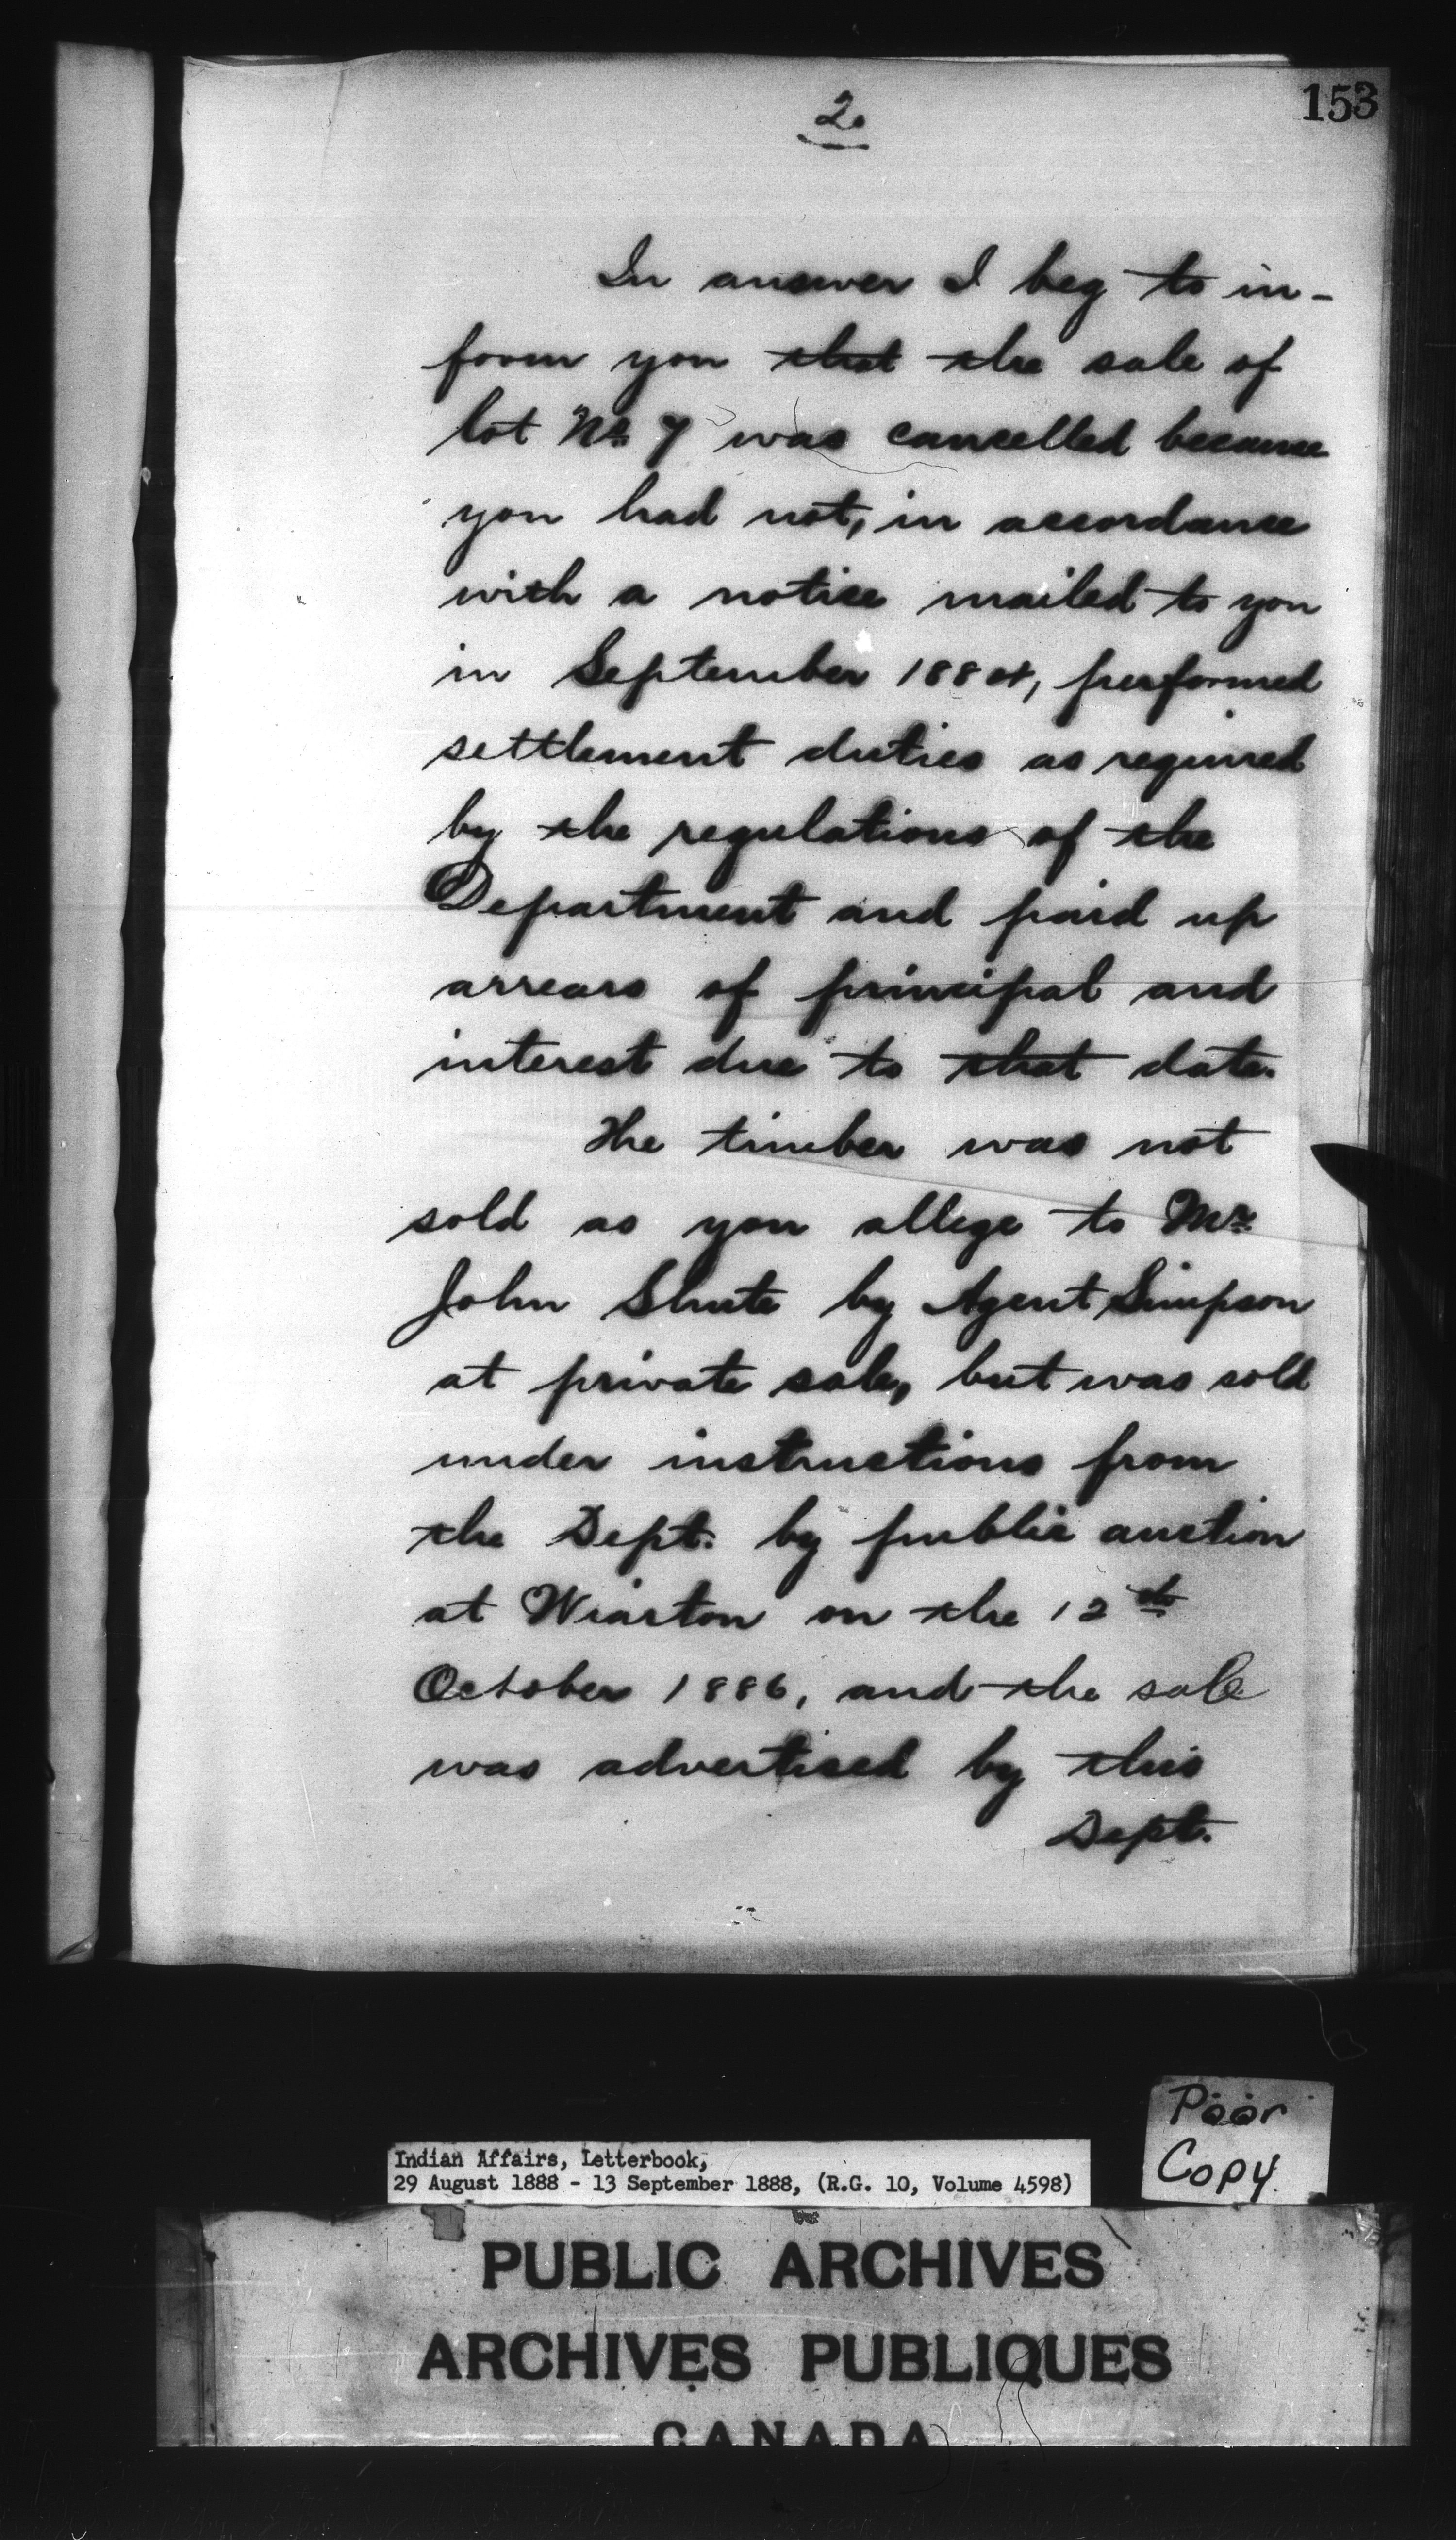 153
2.
In answer I beg to in-
form you that the sale of
lot No. 7 was cancelled because
you had not, in accordance
with a notice mailed to you
in September 1884, performed
settlement duties as required
by the regulations of the
Department and paid up
arrears of principal and
interest due to that date.
The timber was not
sold as you allege to Mr.
John Shute by Agent Simpson
at private sale, but was sold
under instructions from
the Dept. by public auction
at Wiarton on the 12th
October 1886, and the sale
was advertised by this
Dept.
Poor
Copy.
Indian Affairs, Letterbook,
29 August 1888 - 13 September 1888, (R.G. 10, Volume 4598)
PUBLIC ARCHIVES
ARCHIVES PUBLIQUES
CANADA